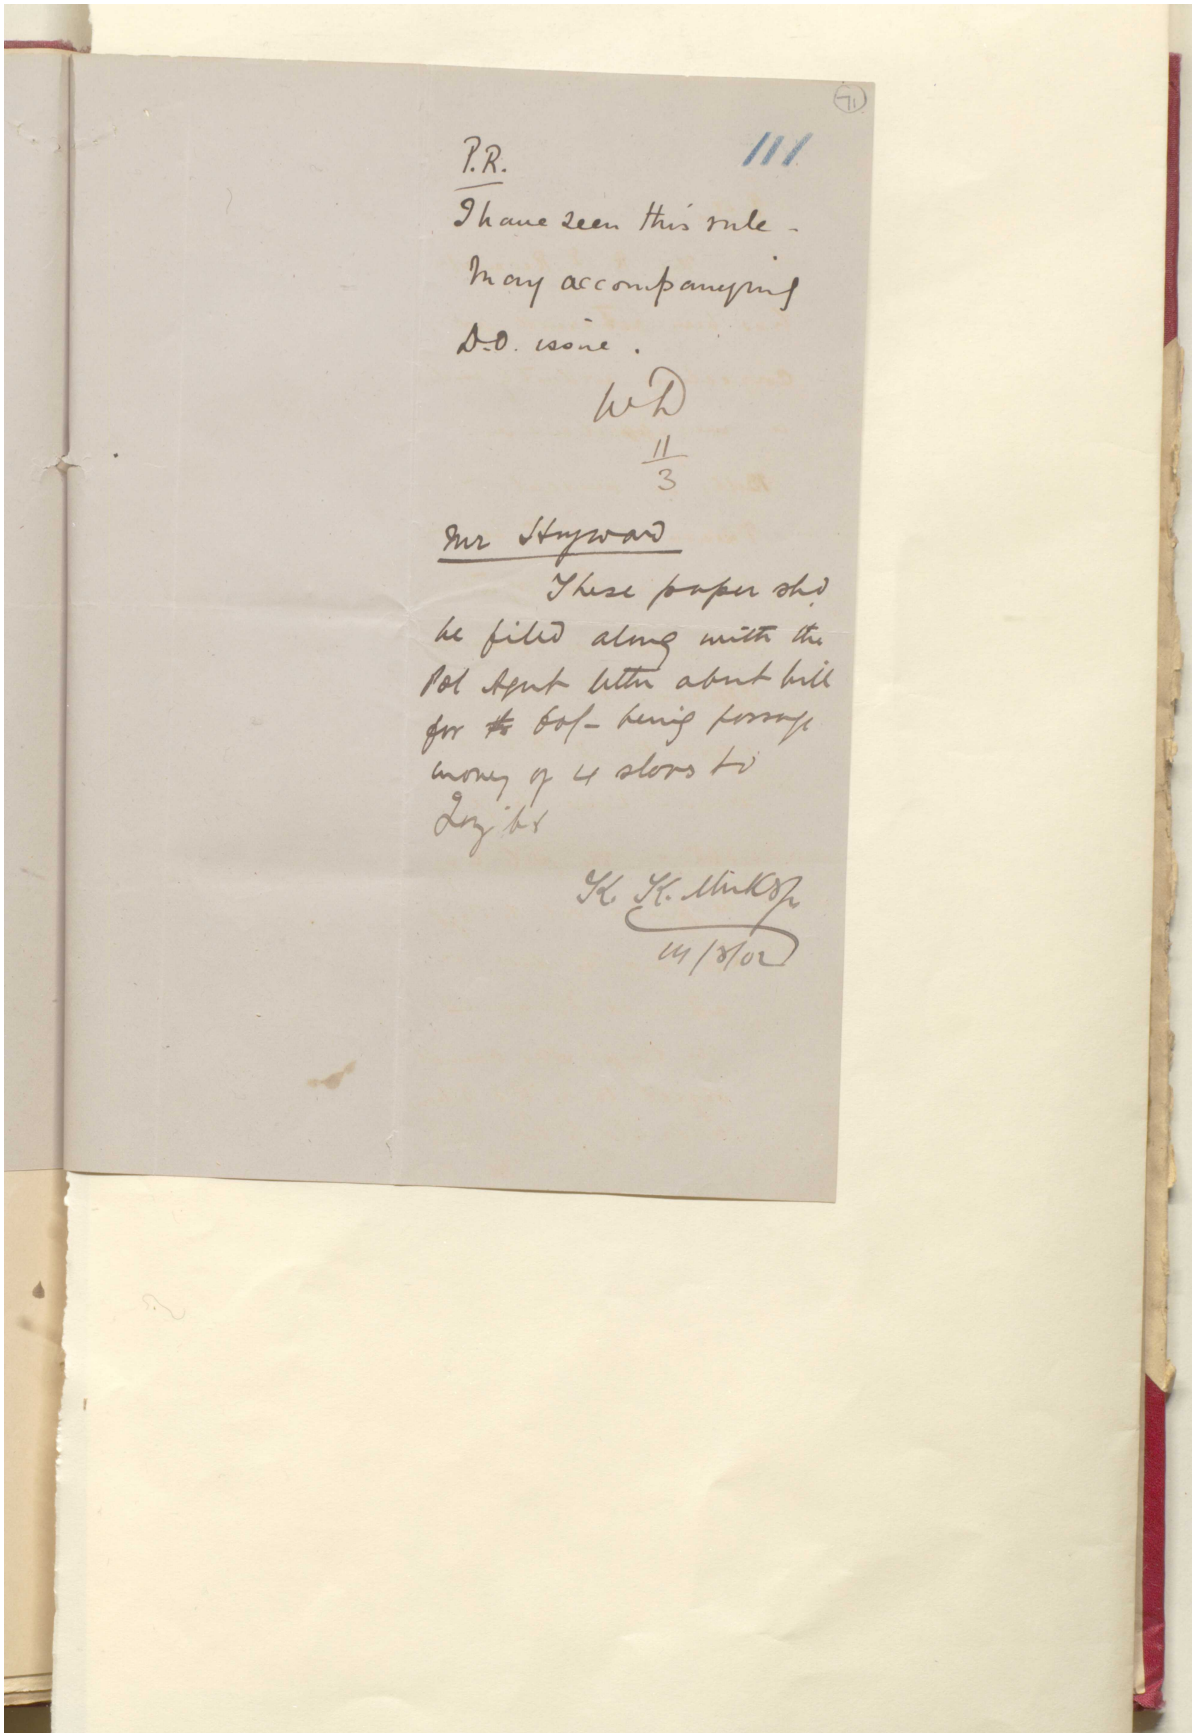 71
111
P.R.
I have seen this rule -
May accompanying
D.O. issue.
11
3
Mr Hayward
These paper shd
be filed along with the
Pol Agent letter about bill
for Rs 60/- being passage
money of 4 slaves to
K. K.
14/3/02